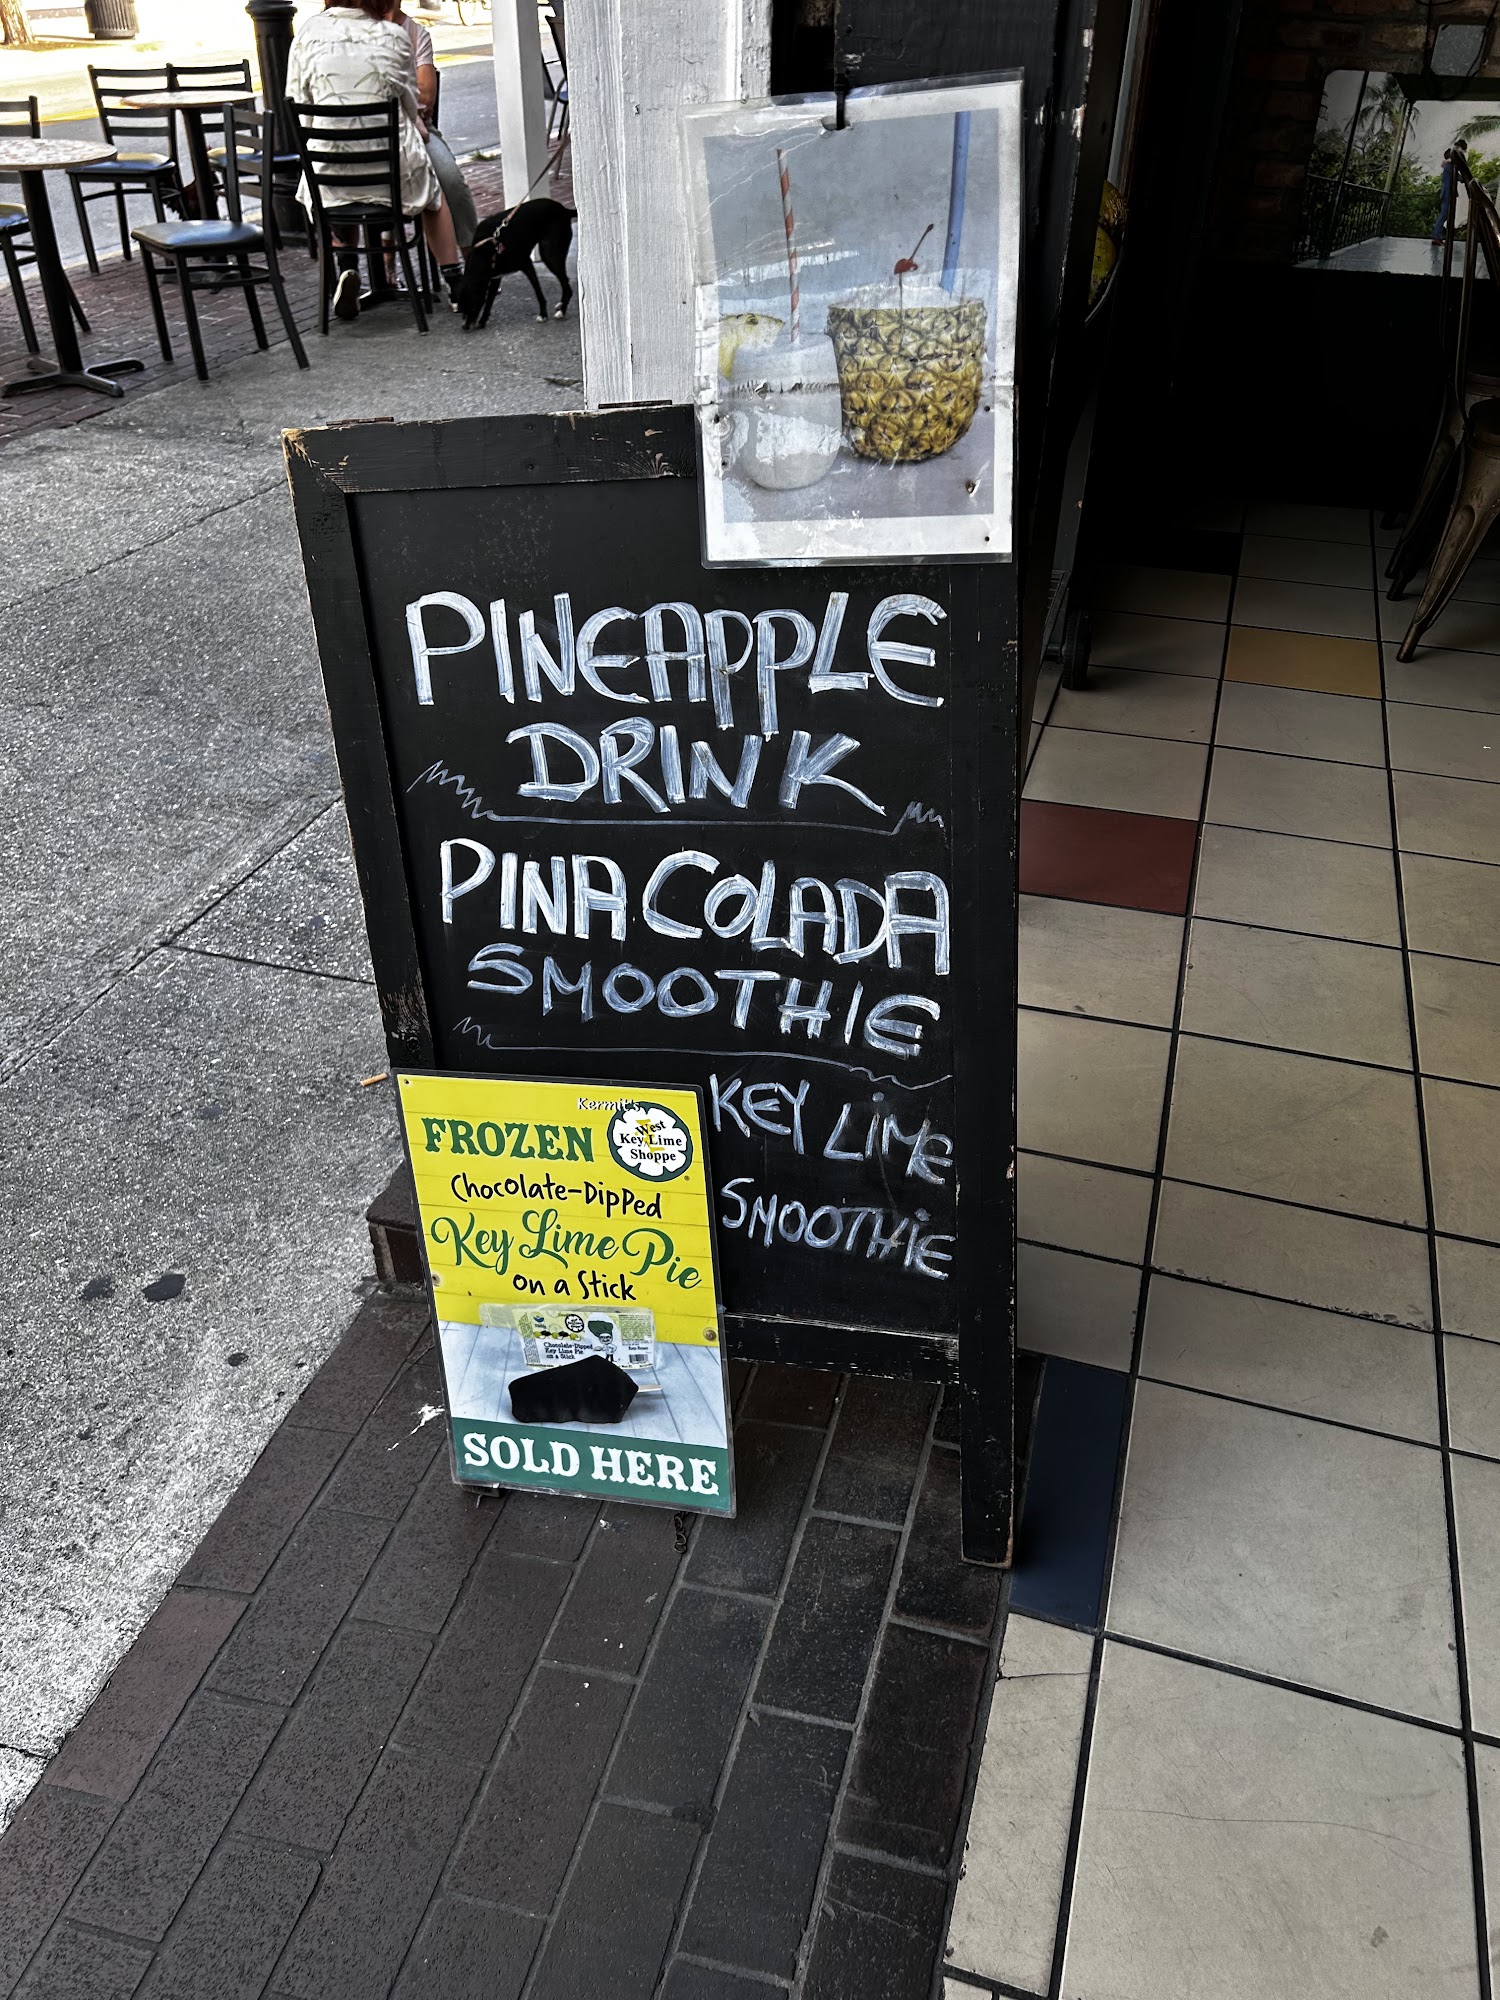 PINEAPPLE
DRINK
PINA COLADA
SMOOTHIE
KEY LiME
SMOOTHiE
Kermit's
West
Key Lime
Shoppe
FROZEN
Chocolate-Dipped
Key Lime Pie
on a Stick
Chocolate-Dipped
Key Lime Pie
on a Stick
SOLD HERE